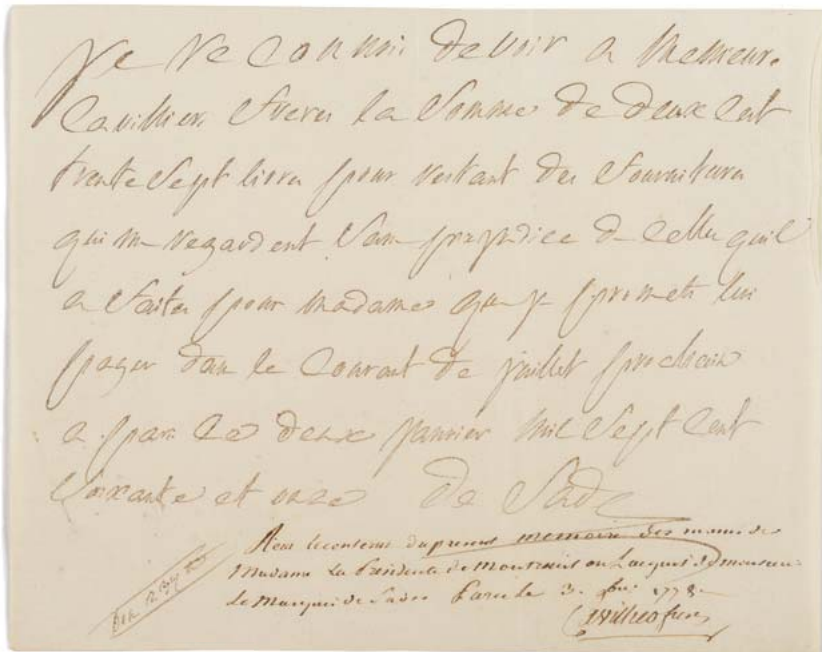 Je reconnois devoir a Messieurs
Cavillier freres la Somme de deux Cent
trente Sept livres pour restant des fournitures
qui me regardent Sans prejudice de Celles quil
a faites pour madame que je promets lui
payer dans le Courant de juillet prochain
a paris Ce deux janvier mil Sept Cent
Soixante et onze de Sade
le contenu du present memoire des mains de
Madame La Presidente de Montreuil en Lacquit de monsieur
le Marquis de Sade Paris le 3. 1778.